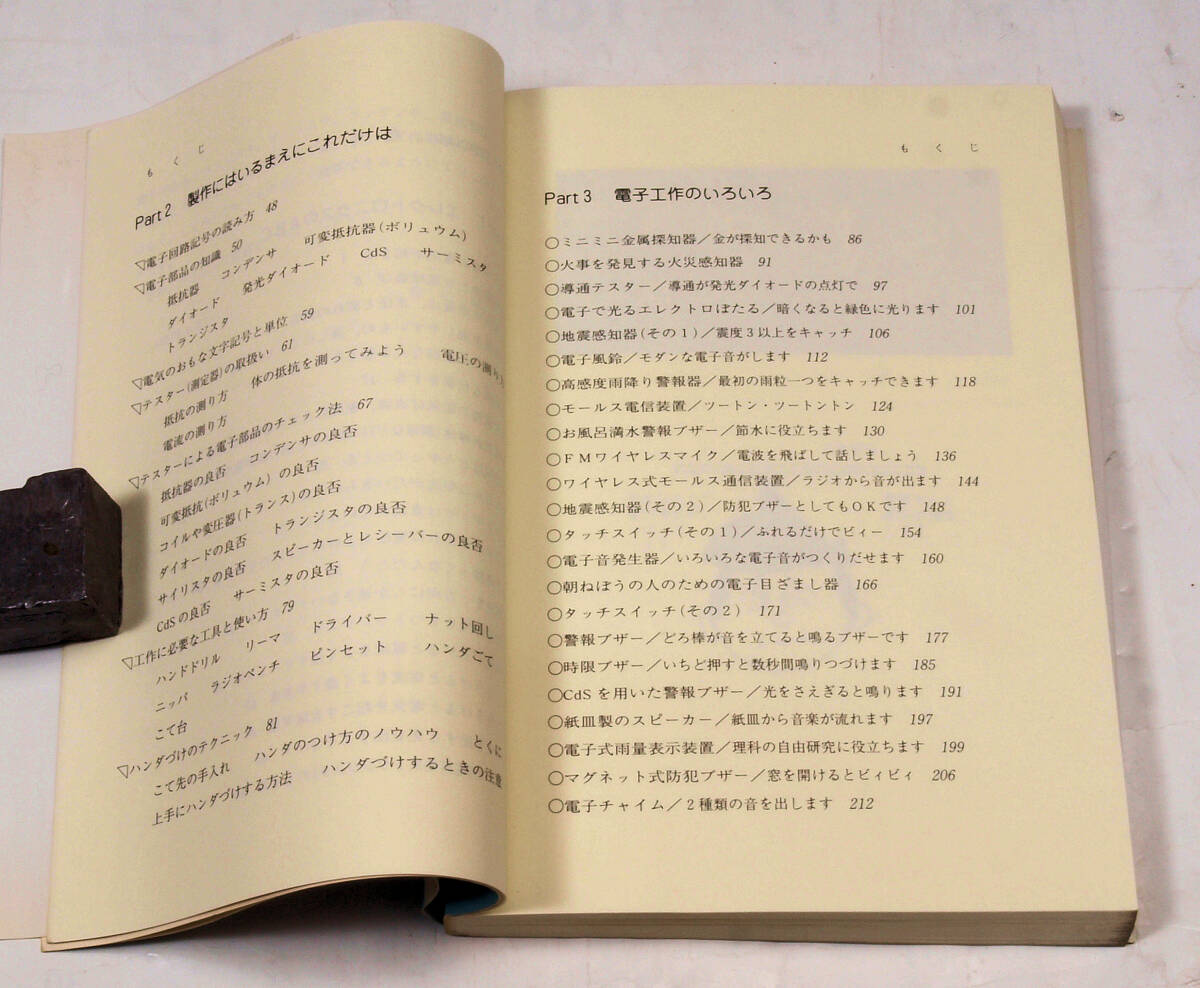 もくじ
Part2 製作にはいるまえにこれだけは
▽電子回路記号の読み方 48
▽電子部品の知識 50
抵抗器 コンデンサ 可変抵抗器(ボリュウム)
ダイオード 発光ダイオード CdS サーミスタ
トランジスタ
▽電気のおもな文字記号と単位 59
▽テスター(測定器)の取扱い 61
抵抗の測り方 体の抵抗を測ってみよう 電圧の測り方
電流の測り方
▽テスターによる電子部品のチェック法 67
抵抗器の良否 コンデンサの良否
可変抵抗(ボリュウム)の良否
コイルや変圧器(トランス)の良否
ダイオードの良否 トランジスタの良否
サイリスタの良否 スピーカーとレシーバーの良否
CdSの良否 サーミスタの良否
▽工作に必要な工具と使い方 79
ハンドドリル リーマ ドライバー ナット回し
ニッパ ラジオペンチ ピンセット ハンダごて
こて台
▽ハンダづけのテクニック 81
こて先の手入れ ハンダのつけ方のノウハウ とくに
上手にハンダづけする方法 ハンダづけするときの注意
もくじ
Part3 電子工作のいろいろ
○ミニミニ金属探知器／金が探知できるかも 86
○火事を発見する火災感知器 91
○導通テスター／導通が発光ダイオードの点灯で 97
○電子で光るエレクトロぼたる／暗くなると緑色に光ります 101
○地震感知器(その1)／震度3以上をキャッチ 106
○電子風鈴／モダンな電子音がします 112
○高感度雨降り警報器／最初の雨粒一つをキャッチできます 118
○モールス電信装置／ツートン・ツートントン 124
○お風呂満水警報ブザー／節水に役立ちます 130
○FMワイヤレスマイク／電波を飛ばして話しましょう 136
○ワイヤレス式モールス通信装置／ラジオから音が出ます 144
○地震感知器(その2)／防犯ブザーとしてもOKです 148
○タッチスイッチ(その1)／ふれるだけでビィー 154
○電子音発生器／いろいろな電子音がつくりだせます 160
○朝ねぼうの人のための電子目ざまし器 166
○タッチスイッチ(その2) 171
○警報ブザー／どろ棒が音を立てると鳴るブザーです 177
○時限ブザー／いちど押すと数秒間鳴りつづけます 185
○CdSを用いた警報ブザー／光をさえぎると鳴ります 191
○紙皿製のスピーカー／紙皿から音楽が流れます 197
○電子式雨量表示装置／理科の自由研究に役立ちます 199
○マグネット式防犯ブザー／窓を開けるとビィビィ 206
○電子チャイム／2種類の音を出します 212